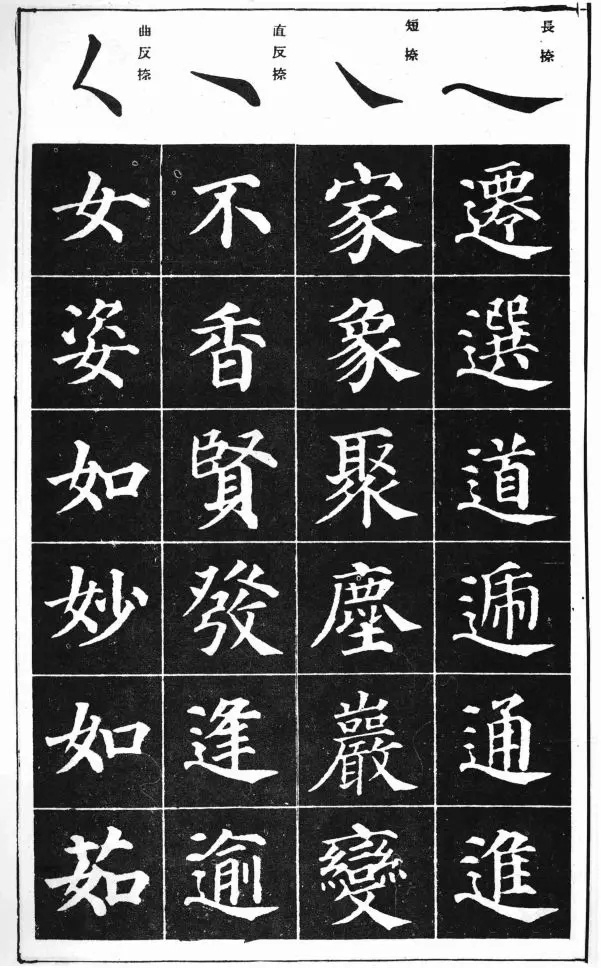 長捺
遷選道遞通進
短捺
家象聚塵嚴變
直反捺
不香賢發逢逾
曲反捺
女姿如妙如茹